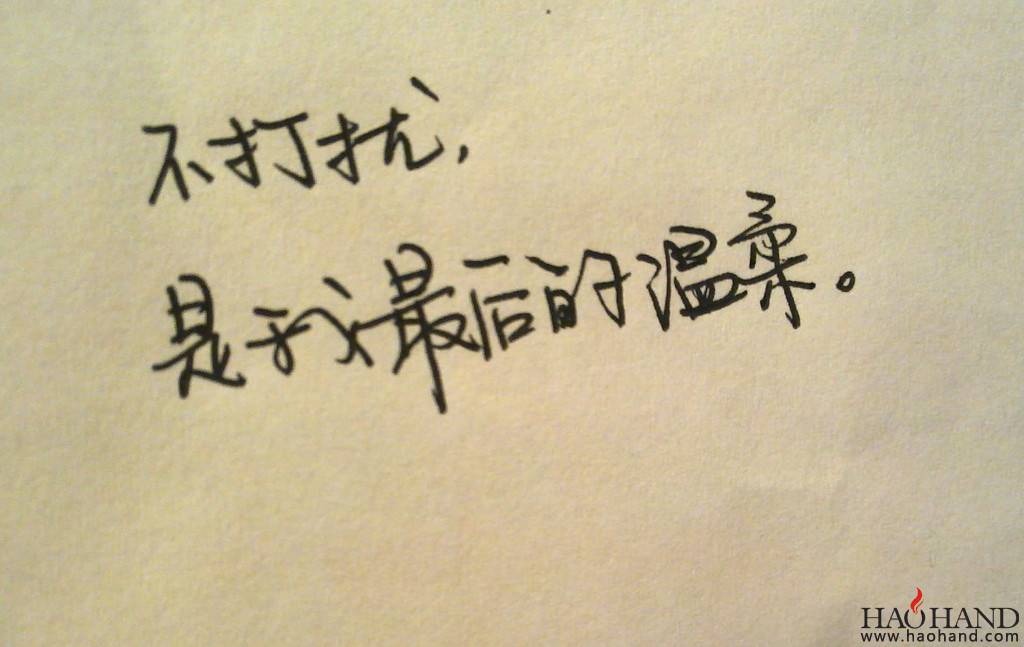 不打扰,
是我最后的温柔。
HAOHAND
www.haohand.com